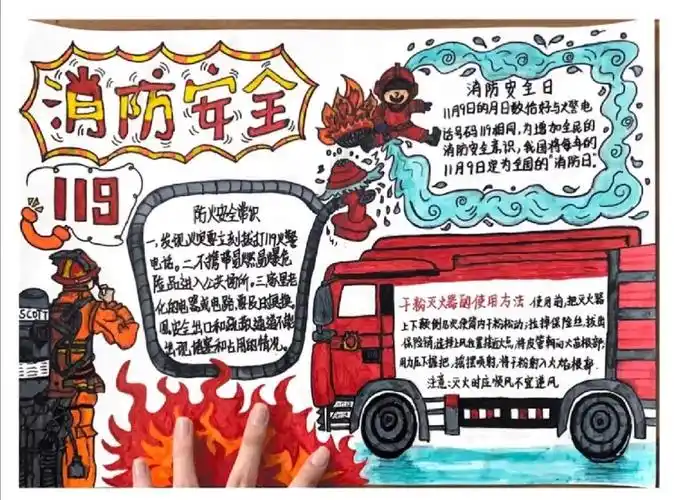 消防安全
消防安全日
11月9日的月日数恰好与火警电
话号码119相同,为增加全民的
消防安全意识,我国将每年的
11月9日定为全国的“消防日”。
119
防火安全常识
一、发现火灾要立刻拨打119火警
电话。二、不携带易燃易爆危
险品进入公共场所。三、家里老
化的电器或电路,要及时更换。
四、安全出口和疏散通道不能
出现堵塞和占用的情况。
SCOTT
干粉灭火器的使用方法 使用前,把灭火器
上下颠倒几次使筒内干粉松动;拉掉保险丝,拔出
保险销;选择上风位置接近火点,将皮管朝向火苗根部;
用力压下握把,摇摆喷射,将干粉射入火焰根部.
注意:灭火时应顺风不宜逆风